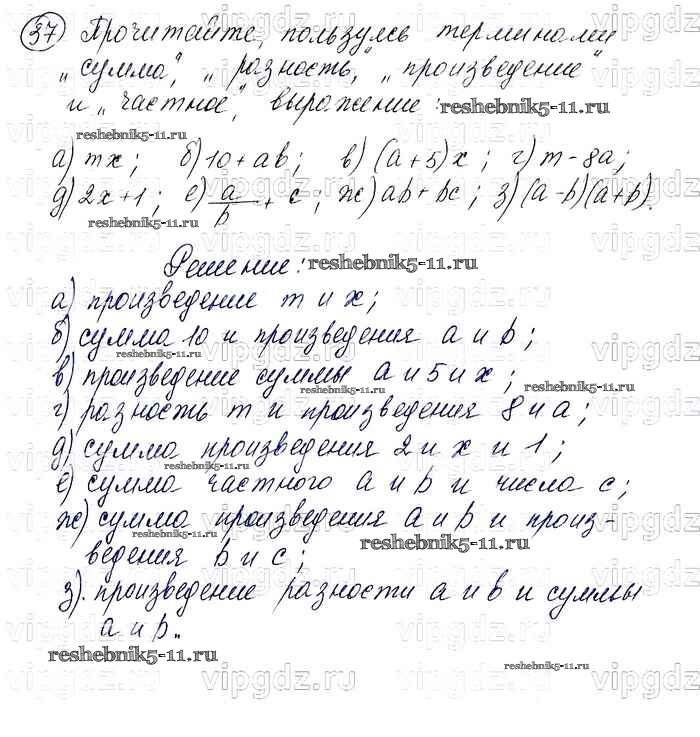 37 Прочитайте, пользуясь терминами
„сумма", „разность," „произведение"
и „частное", выражение: reshebnik5-11.ru
reshebnik5-11.ru
а) mx; б) 10+ab; в) (a+5)x; г) m-8a;
д) 2x+1; е) a/b + c; ж) ab+bc; з) (a-b)(a+b).
reshebnik5-11.ru
Решение: reshebnik5-11.ru
а) произведение m и x;
б) сумма 10 и произведения a и b;
reshebnik5-11.ru
в) произведение суммы a и 5 и x;
reshebnik5-11.ru
reshebnik5-11.ru
г) разность m и произведения 8 и a;
д) сумма произведения 2 и x и 1;
reshebnik5-11.ru
е) сумма частного a и b и числа c;
ж) сумма произведения a и b и произ-
reshebnik5-11.ru
ведения b и c;
reshebnik5-11.ru
з). произведение разности a и в и суммы
a и b..
reshebnik5-11.ru
reshebnik5-11.ru
vipgdz.ru vipgdz.ru vipgdz.ru vipgdz.ru